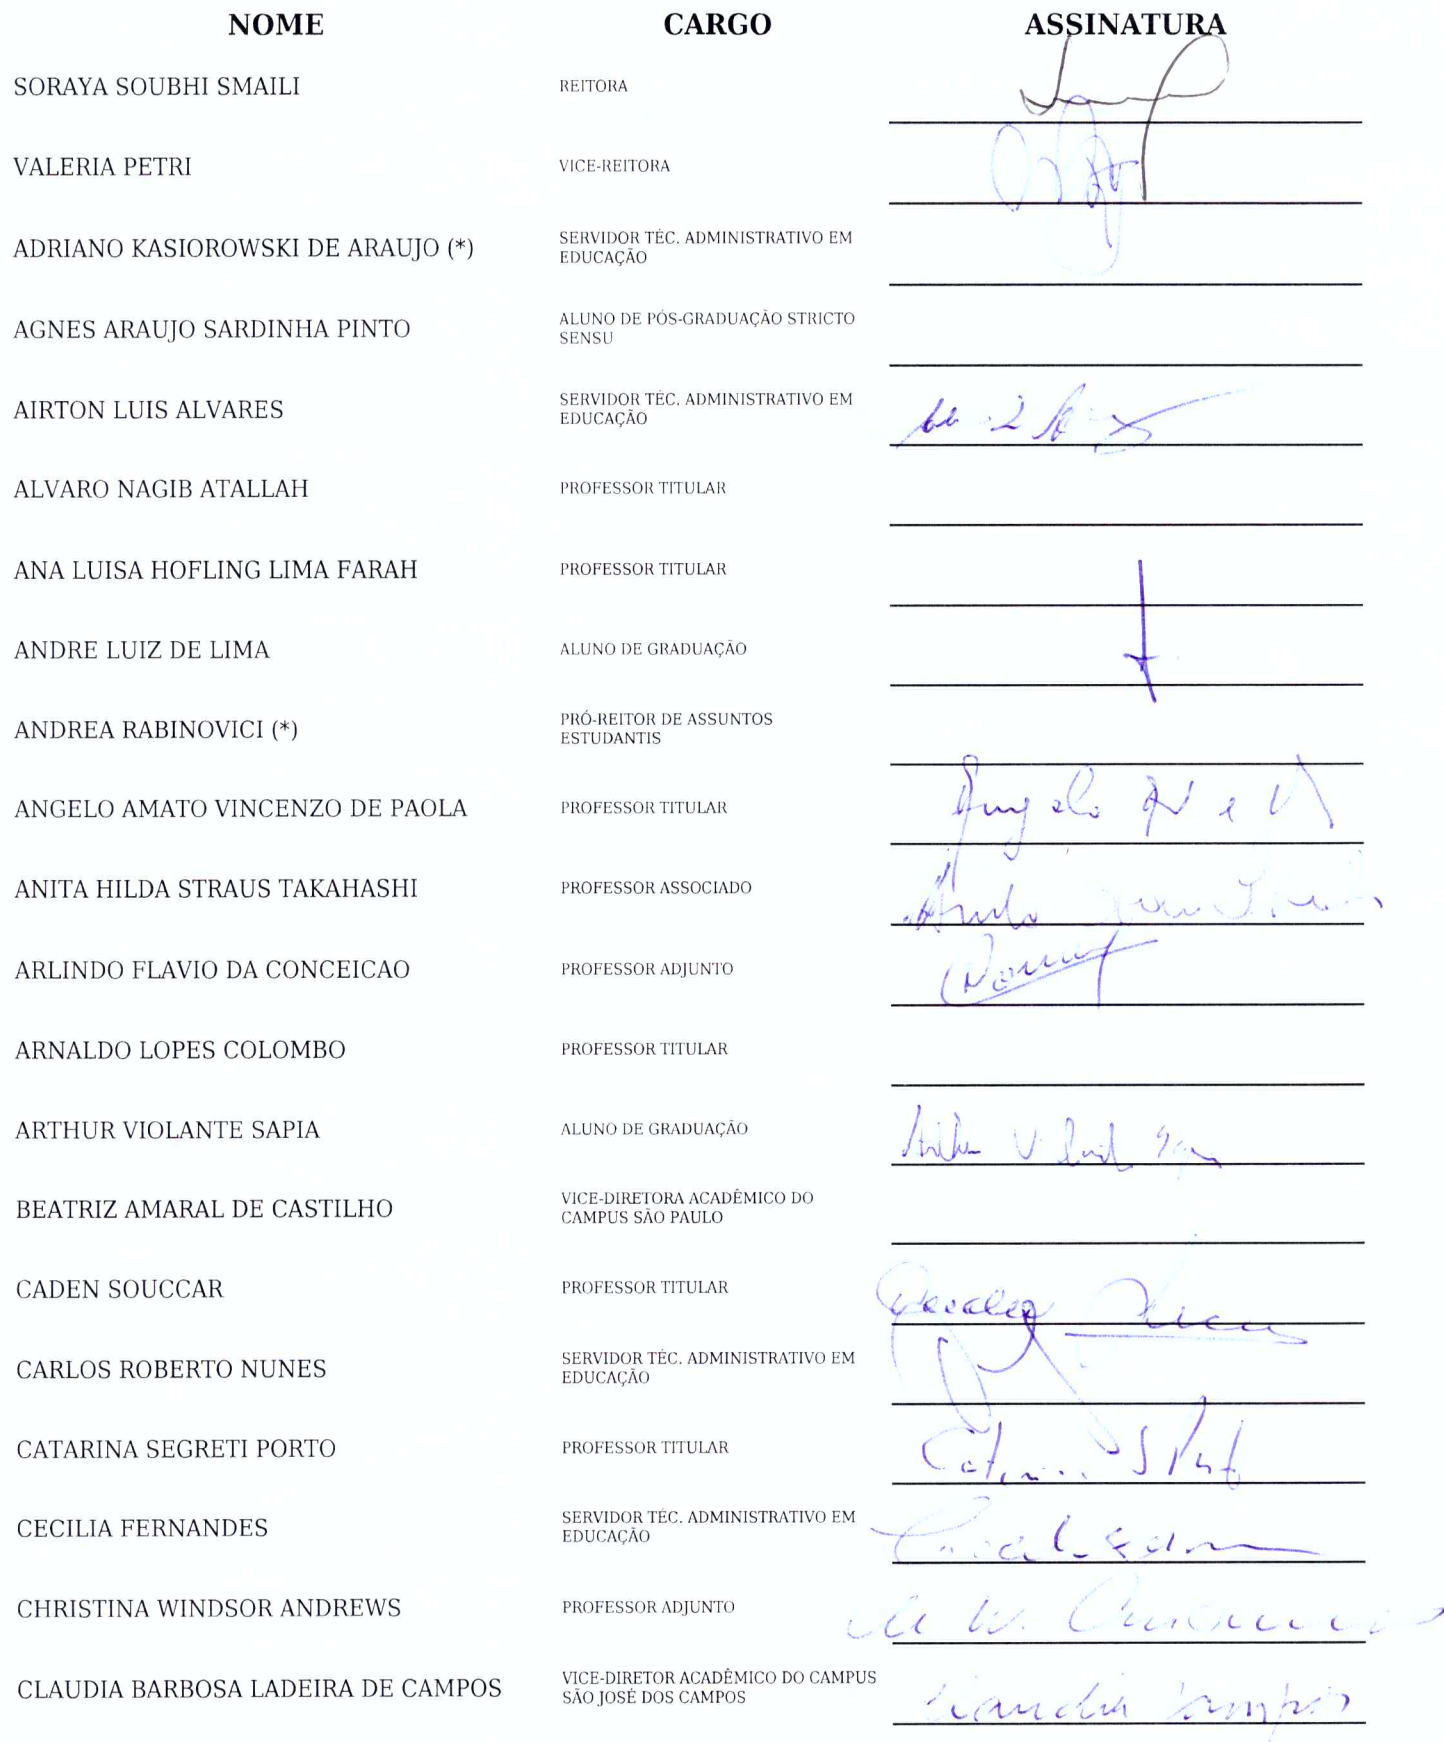 NOME CARGO ASSINATURA
SORAYA SOUBHI SMAILI REITORA
VALERIA PETRI VICE-REITORA
ADRIANO KASIOROWSKI DE ARAUJO (*) SERVIDOR TÉC. ADMINISTRATIVO EM
EDUCAÇÃO
AGNES ARAUJO SARDINHA PINTO ALUNO DE PÓS-GRADUAÇÃO STRICTO
SENSU
AIRTON LUIS ALVARES SERVIDOR TÉC. ADMINISTRATIVO EM
EDUCAÇÃO
ALVARO NAGIB ATALLAH PROFESSOR TITULAR
ANA LUISA HOFLING LIMA FARAH PROFESSOR TITULAR
ANDRE LUIZ DE LIMA ALUNO DE GRADUAÇÃO
ANDREA RABINOVICI (*) PRÓ-REITOR DE ASSUNTOS
ESTUDANTIS
ANGELO AMATO VINCENZO DE PAOLA PROFESSOR TITULAR Angelo
ANITA HILDA STRAUS TAKAHASHI PROFESSOR ASSOCIADO
ARLINDO FLAVIO DA CONCEICAO PROFESSOR ADJUNTO
ARNALDO LOPES COLOMBO PROFESSOR TITULAR
ARTHUR VIOLANTE SAPIA ALUNO DE GRADUAÇÃO
BEATRIZ AMARAL DE CASTILHO VICE-DIRETORA ACADÊMICO DO
CAMPUS SÃO PAULO
CADEN SOUCCAR PROFESSOR TITULAR
CARLOS ROBERTO NUNES SERVIDOR TÉC. ADMINISTRATIVO EM
EDUCAÇÃO
CATARINA SEGRETI PORTO PROFESSOR TITULAR
CECILIA FERNANDES SERVIDOR TÉC. ADMINISTRATIVO EM
EDUCAÇÃO
CHRISTINA WINDSOR ANDREWS PROFESSOR ADJUNTO
CLAUDIA BARBOSA LADEIRA DE CAMPOS VICE-DIRETOR ACADÊMICO DO CAMPUS
SÃO JOSÉ DOS CAMPOS Claudia Campos